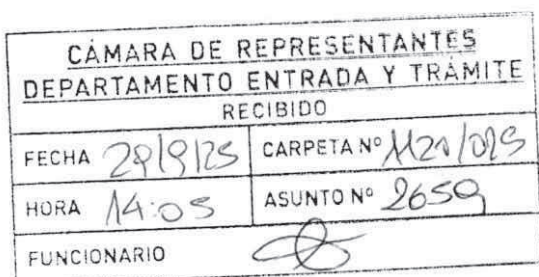 CÁMARA DE REPRESENTANTES
DEPARTAMENTO ENTRADA Y TRÁMITE
RECIBIDO
FECHA 29/9/25 CARPETA Nº 1120/025
HORA 14:05 ASUNTO Nº 2659
FUNCIONARIO